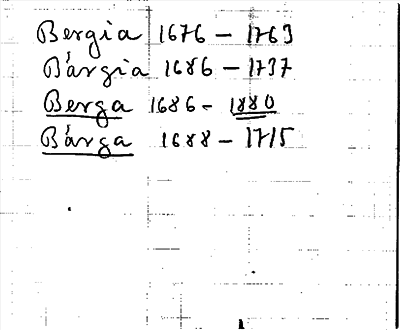 Bergia 1676 – 1763
Bárgia 1686 – 1737
Berga 1686 – 1880
Bárga 1688 – 1715